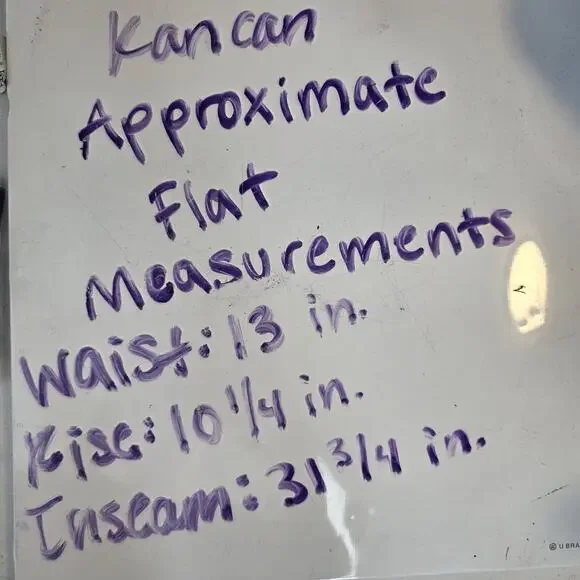 Kancan
Approximate
Flat
Measurements
Waist: 13 in.
Rise: 10 1/4 in.
Inseam: 31 3/4 in.
U BRA